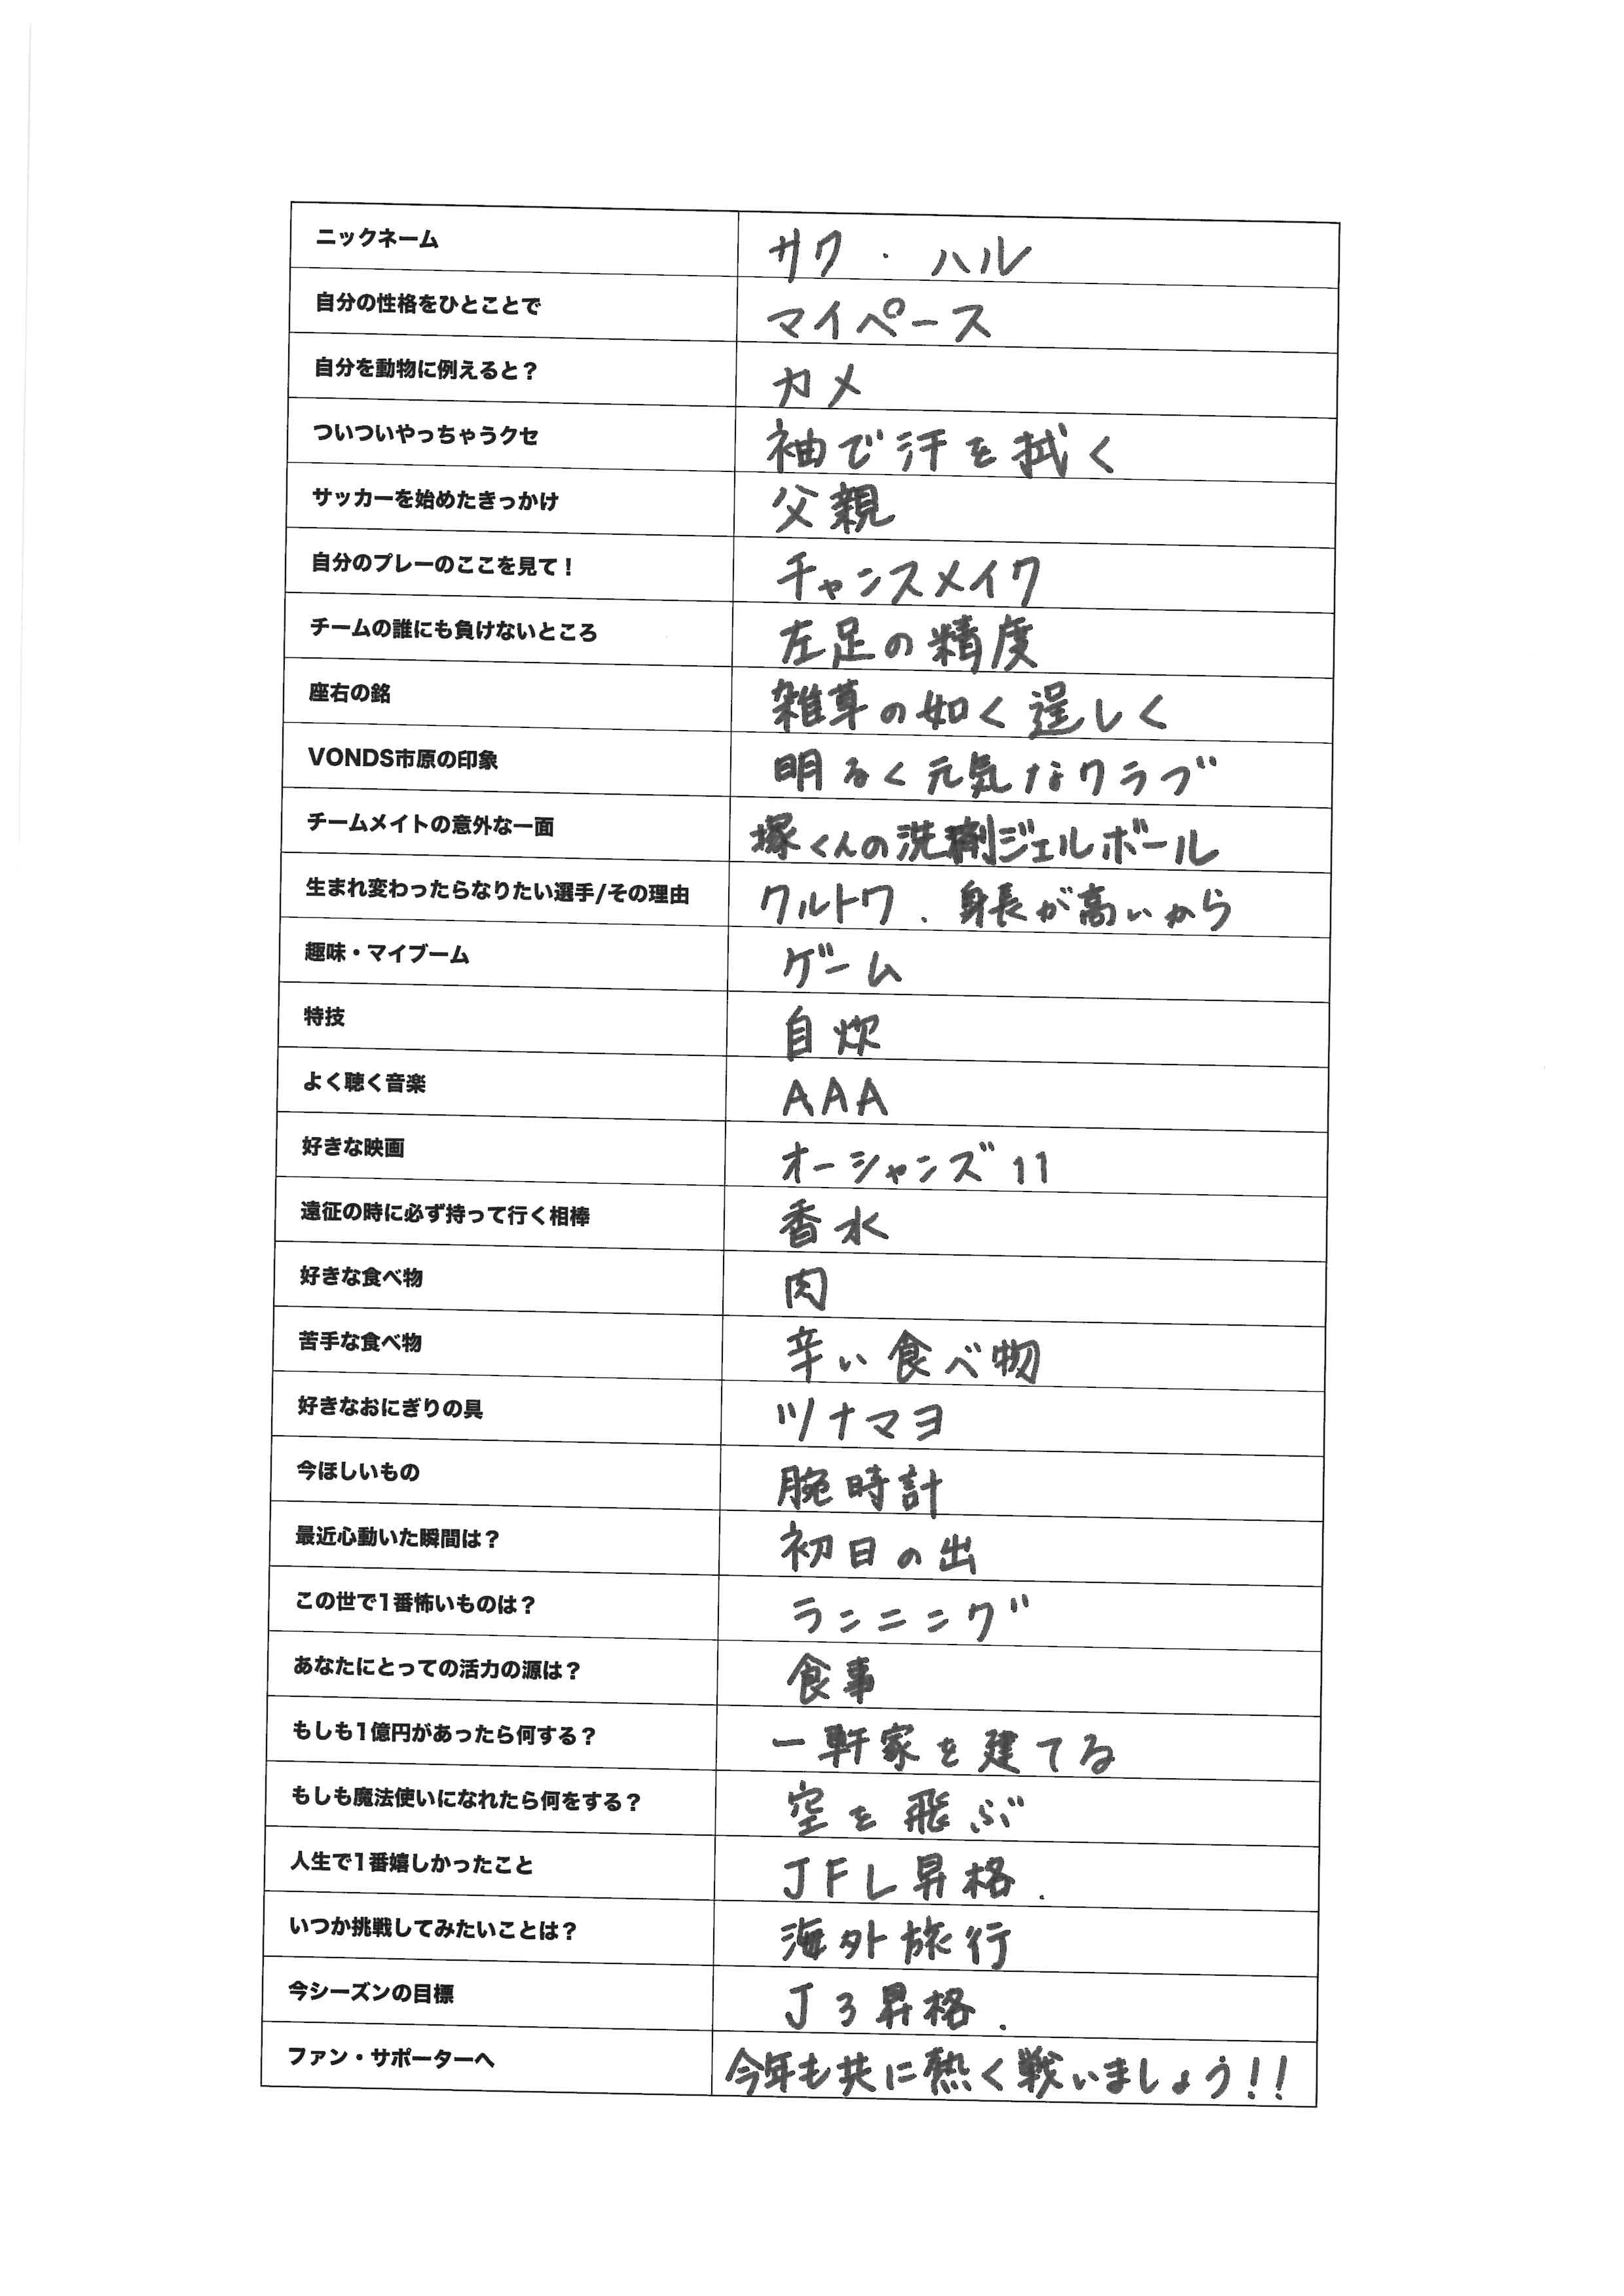 ニックネーム サク・ハル
自分の性格をひとことで マイペース
自分を動物に例えると？ カメ
ついついやっちゃうクセ 袖で汗を拭く
サッカーを始めたきっかけ 父親
自分のプレーのここを見て！ チャンスメイク
チームの誰にも負けないところ 左足の精度
座右の銘 雑草の如く逞しく
VONDS市原の印象 明るく元気なクラブ
チームメイトの意外な一面 塚くんの洗剤ジェルボール
生まれ変わったらなりたい選手/その理由 クルトワ、身長が高いから
趣味・マイブーム ゲーム
特技 自炊
よく聴く音楽 AAA
好きな映画 オーシャンズ11
遠征の時に必ず持って行く相棒 香水
好きな食べ物 肉
苦手な食べ物 辛い食べ物
好きなおにぎりの具 ツナマヨ
今ほしいもの 腕時計
最近心動いた瞬間は？ 初日の出
この世で1番怖いものは？ ランニング
あなたにとっての活力の源は？ 食事
もしも1億円があったら何する？ 一軒家を建てる
もしも魔法使いになれたら何をする？ 空を飛ぶ
人生で1番嬉しかったこと JFL昇格.
いつか挑戦してみたいことは？ 海外旅行
今シーズンの目標 J3昇格.
ファン・サポーターへ 今年も共に熱く戦いましょう!!